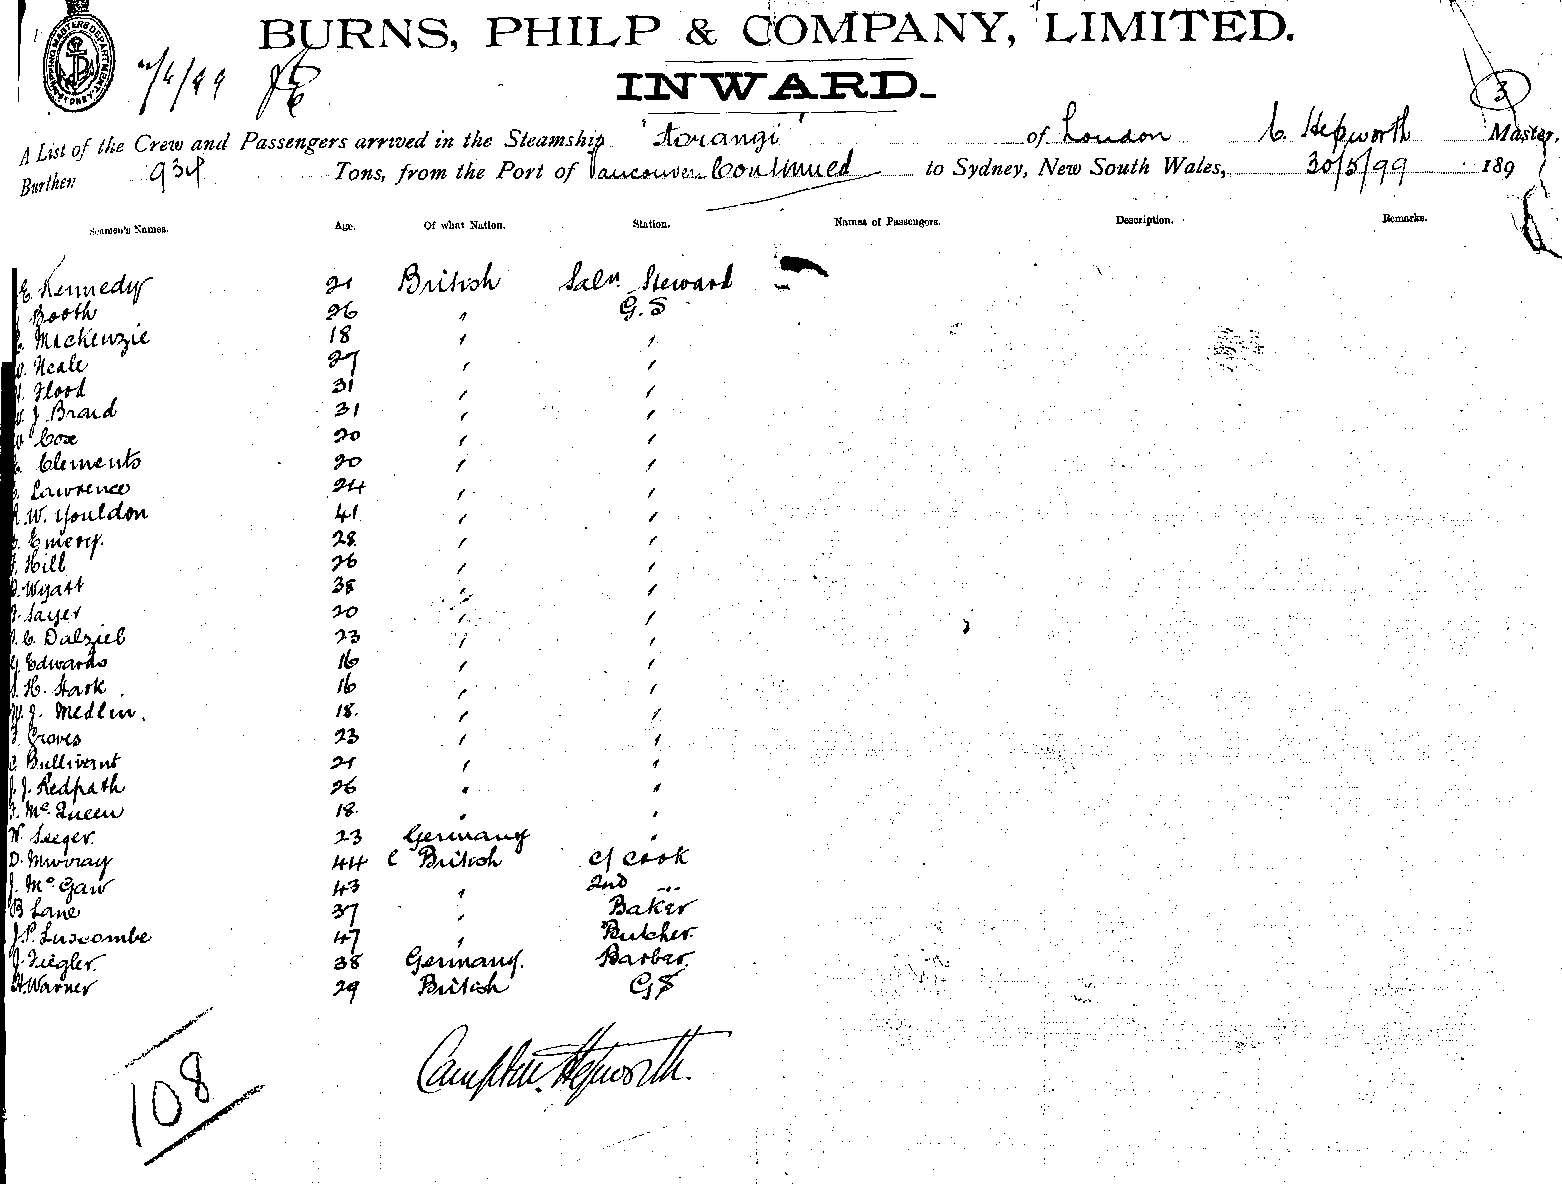 BURNS, PHILP & COMPANY, LIMITED.
INWARD.
3
A List of the Crew and Passengers arrived in the Steamship 'Aorangi' of London C. Hepworth Master,
Burthen Tons, from the Port of Vancouver Continued to Sydney, New South Wales, 30/5/99 189
Seamen's Names. Age. Of what Nation. Station. Names of Passengers. Description. Remarks.
E. Kennedy 21 British Saln Steward
Booth 26 " G.S
Mackenzie 18 " "
Neale 27 " "
Flood 31 " "
J Braid 31 " "
Cox 20 " "
Clements 20 " "
Lawrence 24 " "
W. Youldon 41 " "
Emery. 28 " "
Hill 26 " "
Wyatt 38 " "
Sayer 20 " "
C. Dalzieb 23 " "
G. Edwards 16 " "
H. Stark 16 " "
W. J. Medlin. 18 " "
Groves 23 " "
C. Bullivent 21 " "
J. J. Redpath 26 " "
Mc. Queen 18 " "
W. Seeger. 23 Germany "
D. Murray 44 British C/ Cook
J. Mc Gaw 43 " 2nd "
B Lane 37 " Baker
J. P. Luscombe 47 " Butcher.
J. Ziegler. 38 Germany. Barber.
H. Warner 29 British GS
Campbell Hepworth.
108